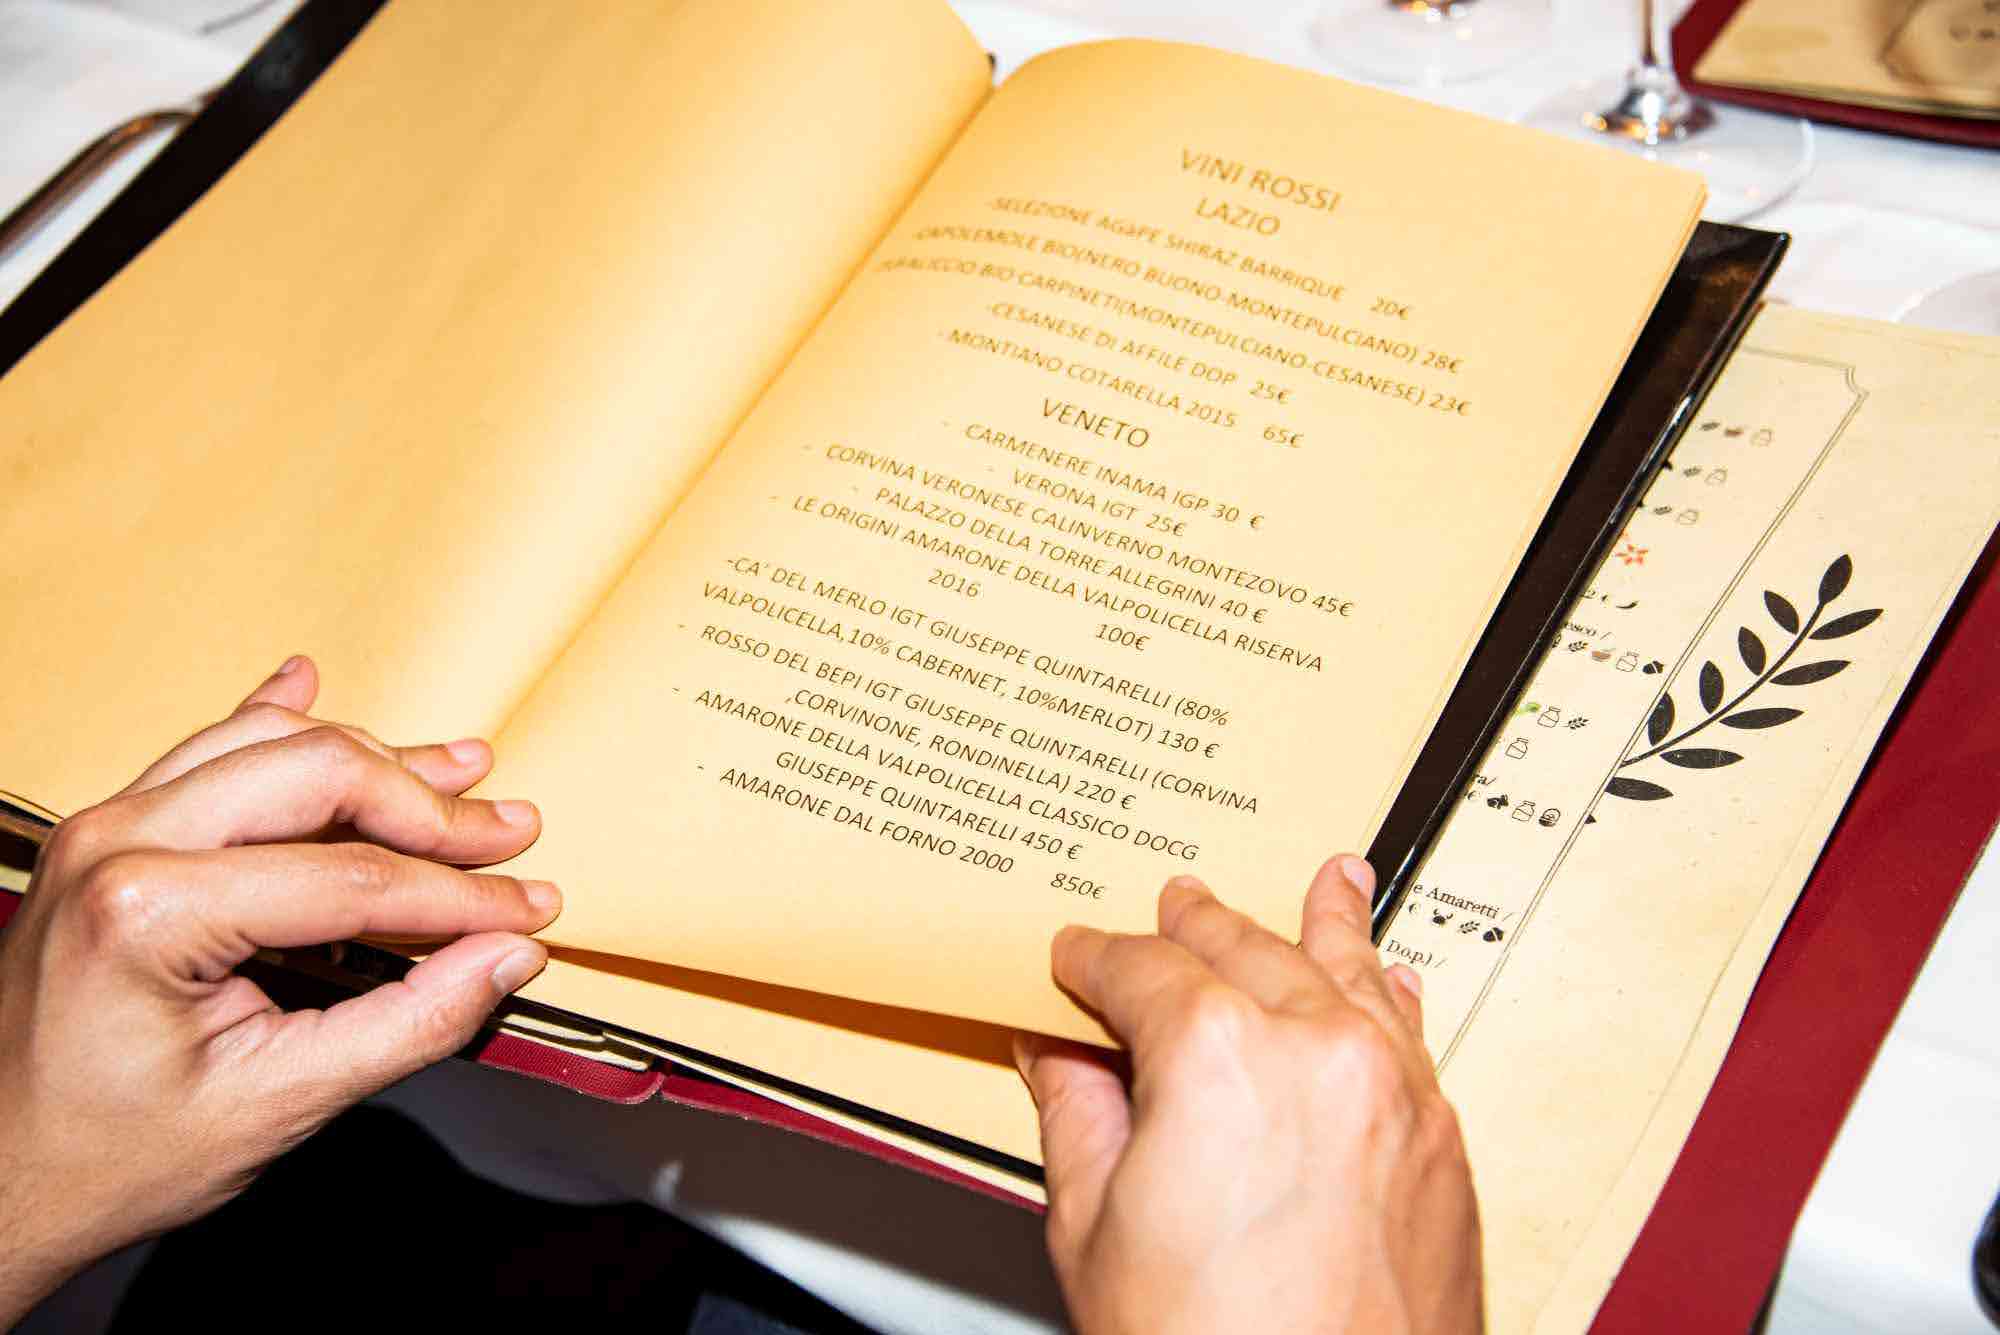 VINI ROSSI
LAZIO
-SELEZIONE AGàPE SHIRAZ BARRIQUE 20€
-CAPOLEMOLE BIO(NERO BUONO-MONTEPULCIANO) 28€
BIO CARPINETI(MONTEPULCIANO-CESANESE) 23€
-CESANESE DI AFFILE DOP 25€
- MONTIANO COTARELLA 2015 65€
VENETO
- CARMENERE INAMA IGP 30 €
- VERONA IGT 25€
- CORVINA VERONESE CALINVERNO MONTEZOVO 45€
- PALAZZO DELLA TORRE ALLEGRINI 40 €
- LE ORIGINI AMARONE DELLA VALPOLICELLA RISERVA
2016 100€
-CA' DEL MERLO IGT GIUSEPPE QUINTARELLI (80%
VALPOLICELLA,10% CABERNET, 10%MERLOT) 130 €
- ROSSO DEL BEPI IGT GIUSEPPE QUINTARELLI (CORVINA
,CORVINONE, RONDINELLA) 220 €
- AMARONE DELLA VALPOLICELLA CLASSICO DOCG
GIUSEPPE QUINTARELLI 450 €
- AMARONE DAL FORNO 2000 850€
e Amaretti /
€
D.o.p.) /